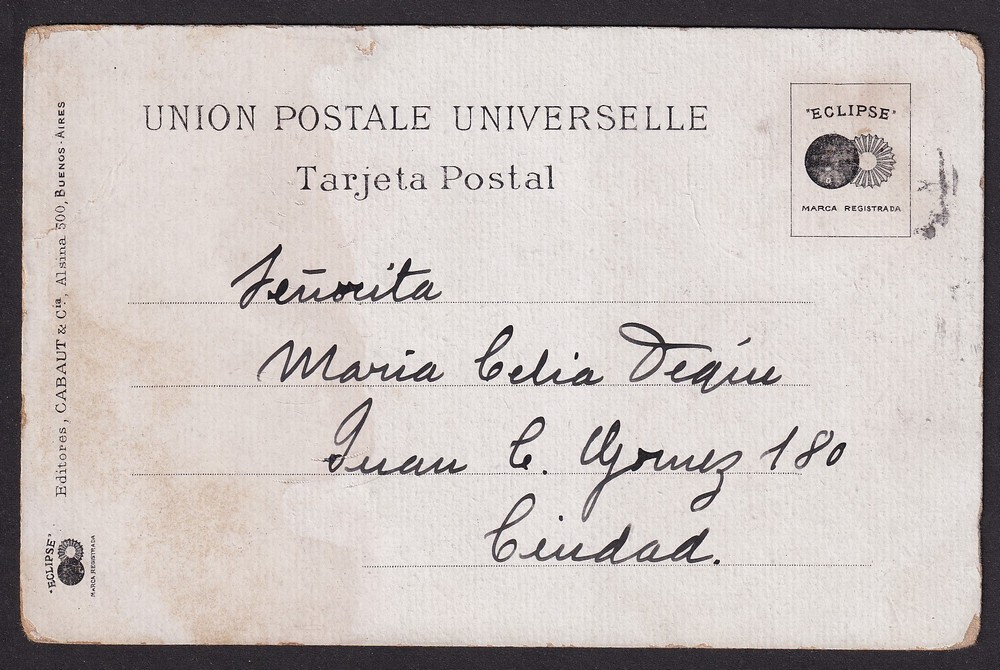 UNION POSTALE UNIVERSELLE
Tarjeta Postal
"ECLIPSE"
MARCA REGISTRADA
Señorita
Maria Celia Deqúe
Juan C. Gomez 180
Ciudad.
Editores, CABAUT & Cia, Alsina 500, BUENOS-AIRES
"ECLIPSE"
MARCA REGISTRADA